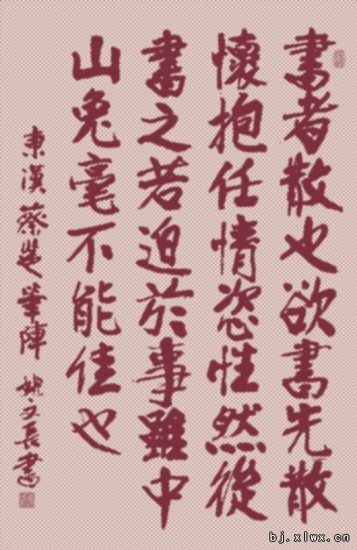 書者散也欲書先散
懷抱任情恣性然後
書之若迫於事雖中
山兔毫不能佳也
東漢蔡邕筆陣 姚又長書
bj.xlwx.cn